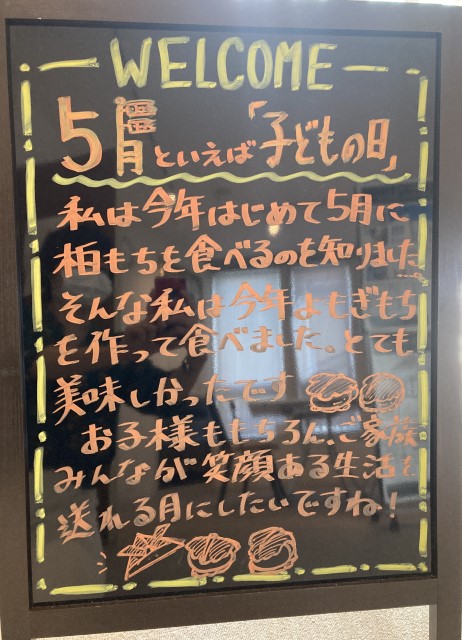 WELCOME
5月といえば「子どもの日」
私は今年はじめて5月に
柏もちを食べるのを知りました…
そんな私は今年よもぎもち
を作って食べました。とても
美味しかったです
お子様ももちろん、ご家族
みんなが笑顔ある生活を
送れる月にしたいですね！